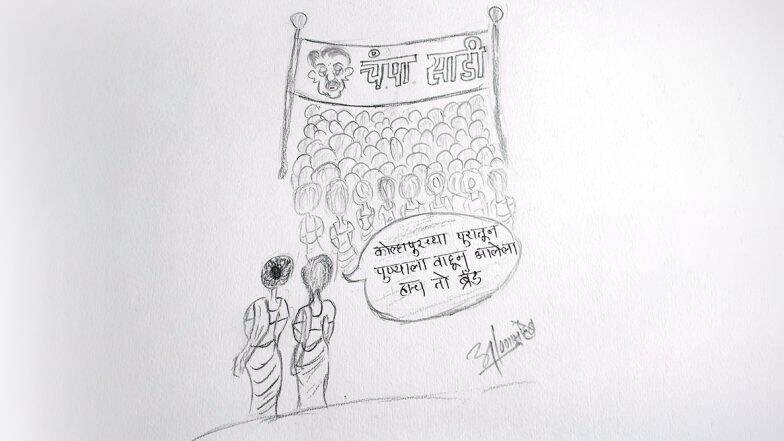 चंपा साडी
कोल्हापुरच्या पुरातून
पुण्याला वाहून आलेला
हाच तो ब्रँड